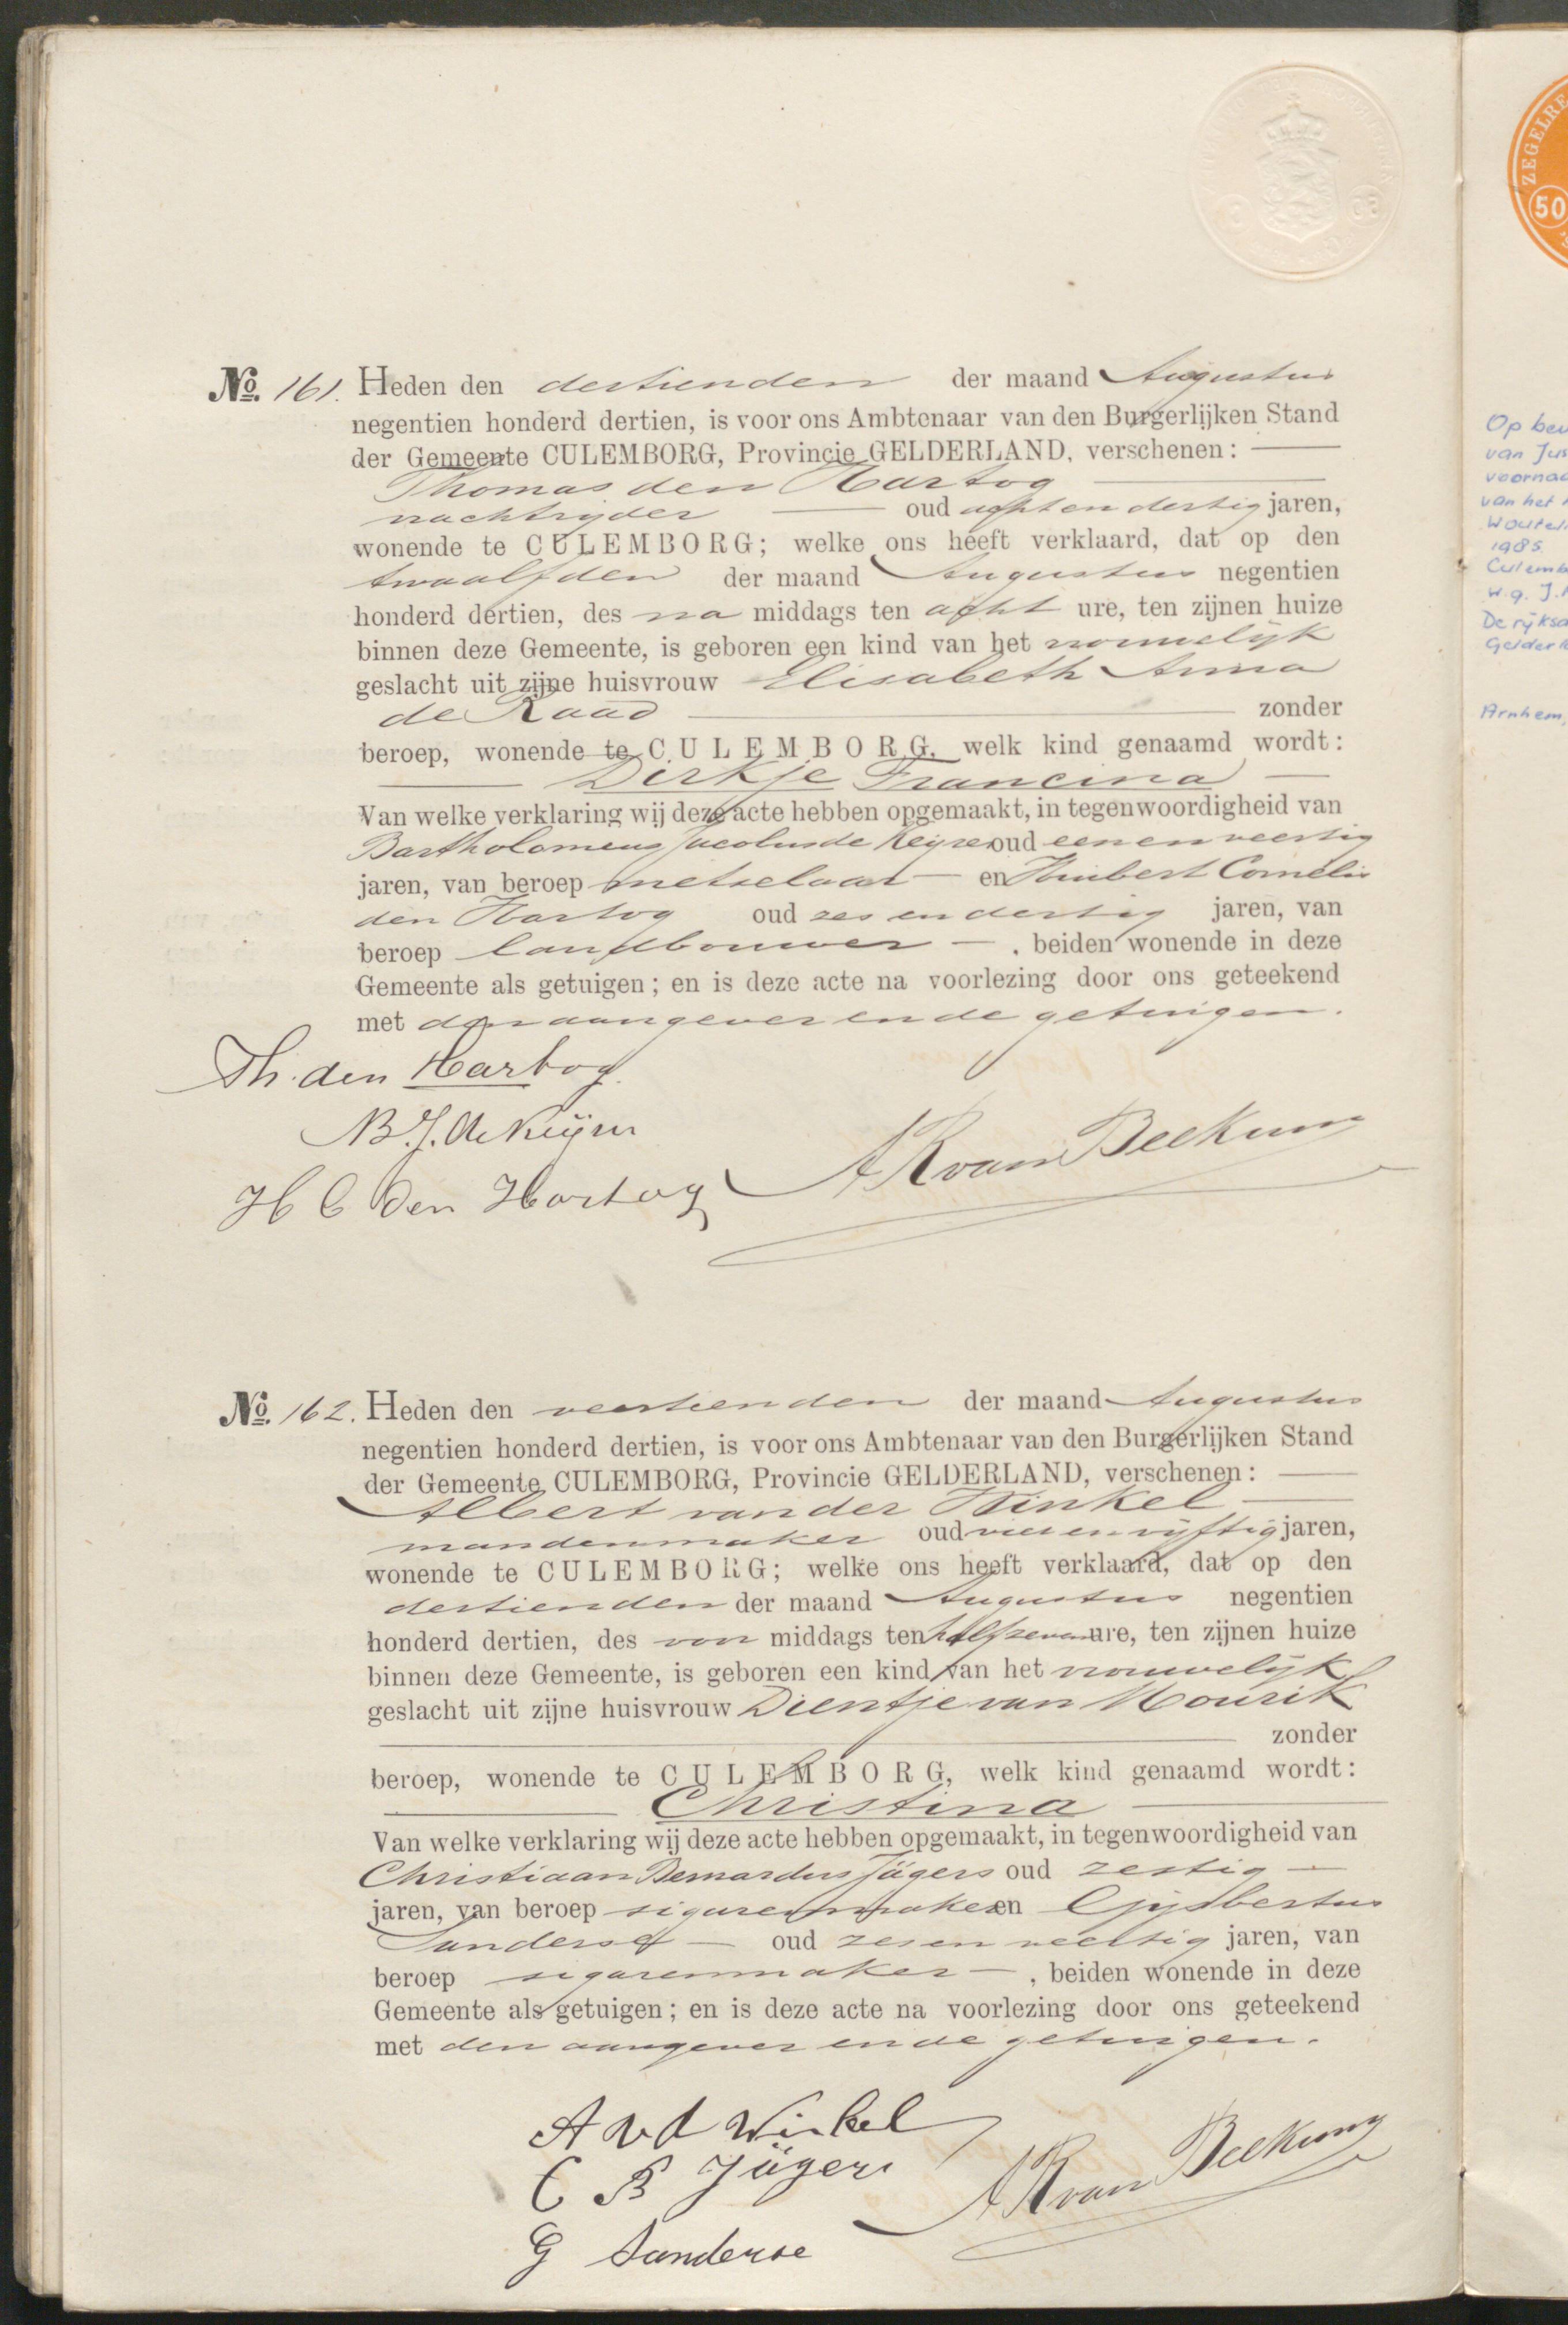 No. 161. Heden den dertienden der maand Augustus
negentien honderd dertien, is voor ons Ambtenaar van den Burgerlijken Stand
der Gemeente CULEMBORG, Provincie GELDERLAND, verschenen:
Thomas den Hartog
nachtrijder oud acht en dertig jaren,
wonende te CULEMBORG; welke ons heeft verklaard, dat op den
twaalfden der maand Augustus negentien
honderd dertien, des na middags ten acht ure, ten zijnen huize
binnen deze Gemeente, is geboren een kind van het vrouwelijk
geslacht uit zijne huisvrouw Elisabeth Anna
de Raad zonder
beroep, wonende te CULEMBORG, welk kind genaamd wordt:
Dirkje Francina
Van welke verklaring wij deze acte hebben opgemaakt, in tegenwoordigheid van
Bartholomeus Jacobus de Keijzer oud een en veertig
jaren, van beroep metselaar en Huibert Cornelis
den Hartog oud zes en dertig jaren, van
beroep landbouwer, beiden wonende in deze
Gemeente als getuigen; en is deze acte na voorlezing door ons geteekend
met den aangever en de getuigen.
Th. den Hartog.
B. J. de
H C den Hartog
AR van Beekum
No. 162. Heden den veertienden der maand Augustus
negentien honderd dertien, is voor ons Ambtenaar van den Burgerlijken Stand
der Gemeente CULEMBORG, Provincie GELDERLAND, verschenen:
Albert van der Winkel
mandenmaker oud vier en vijftig jaren,
wonende te CULEMBORG; welke ons heeft verklaard, dat op den
dertienden der maand Augustus negentien
honderd dertien, des voor middags ten half zeven ure, ten zijnen huize
binnen deze Gemeente, is geboren een kind van het vrouwelijk
geslacht uit zijne huisvrouw Dientje van Mourik
zonder
beroep, wonende te CULEMBORG, welk kind genaamd wordt:
Christina
Van welke verklaring wij deze acte hebben opgemaakt, in tegenwoordigheid van
Christiaan Bernardus Jägers oud zestig
jaren, van beroep sigarenmaker en Gijsbertus
Sanderse oud zes en veertig jaren, van
beroep sigarenmaker, beiden wonende in deze
Gemeente als getuigen; en is deze acte na voorlezing door ons geteekend
met den aangever en de getuigen.
A v d Winkel
C B Jägers
G Sanderse
AR van Beekum
ZEGELRE
50
Op bev
van Jus
voorna
van het
1985
Culemb
w.g. J.
De rijksa
Gelderl
Arnhem,